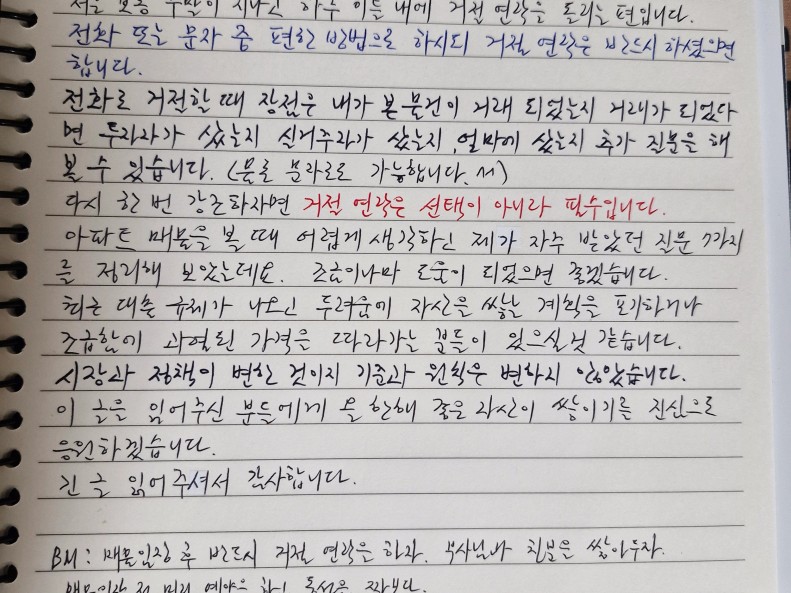 저는 보통 주말이 지나고 하루 이틀 내에 거절 연락을 돌리는 편입니다.
전화 또는 문자 중 편한 방법으로 하시되 거절 연락은 반드시 하셨으면
합니다.
전화로 거절할 때 장점은 내가 본 물건이 거래 되었는지 거래가 되었다
면 투자자가 샀는지 실거주자가 샀는지, 얼마에 샀는지 추가 질문을 해
볼 수 있습니다. (물론 문자로도 가능합니다.^^)
다시 한 번 강조하자면 거절 연락은 선택이 아니라 필수입니다.
아파트 매물을 볼 때 어렵게 생각하신 제가 자주 받았던 질문 7가지
를 정리해 보았는데요. 조금이나마 도움이 되었으면 좋겠습니다.
최근 대출 규제가 나오고 두려움에 자산을 쌓을 계획을 포기하거나
조급함에 과열된 가격을 따라가는 분들이 있으실것 같습니다.
시장과 정책이 변한 것이지 기준과 원칙은 변하지 않았습니다.
이 글을 읽어주신 분들에게 올 한해 좋은 자산이 쌓이기를 진심으로
응원하겠습니다.
긴 글 읽어주셔서 감사합니다.
BM: 매물임장 후 반드시 거절 연락은 하자. 부사님과 친분을 쌓아두자.
매물임장 전 미리 예약은